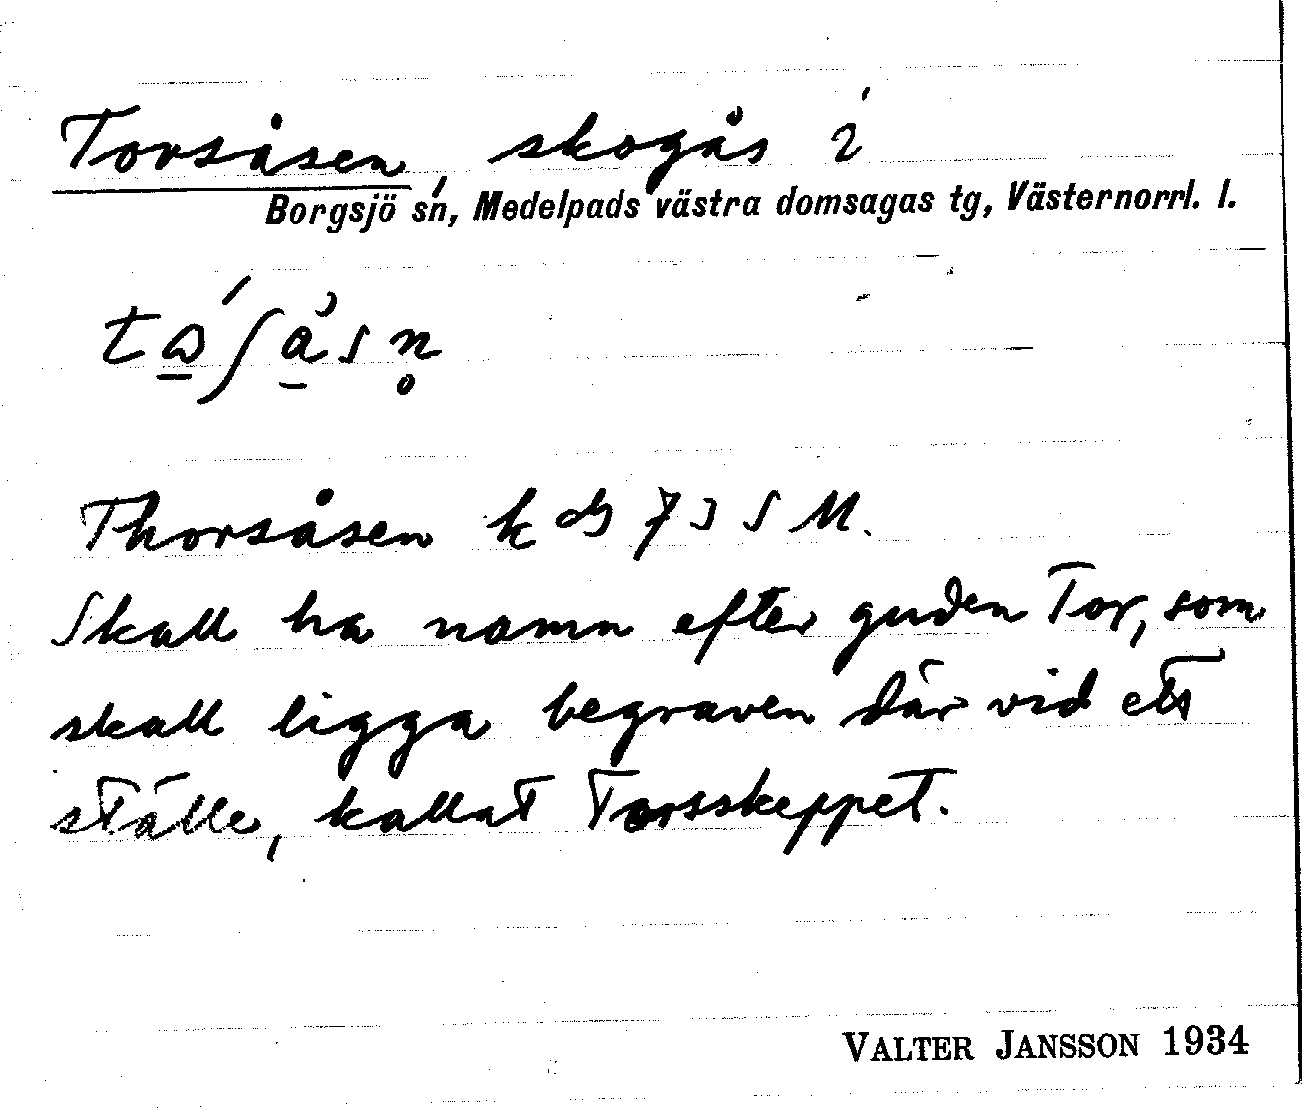 Torsåsen, skogås i
Borgsjö sn, Medelpads västra domsagas tg, Västernorrl. l.
Thorsåsen k
Skall ha namn efter guden Tor, som
skall ligga begraven där vid ett
ställe, kallat Torsskeppet.
VALTER JANSSON 1934